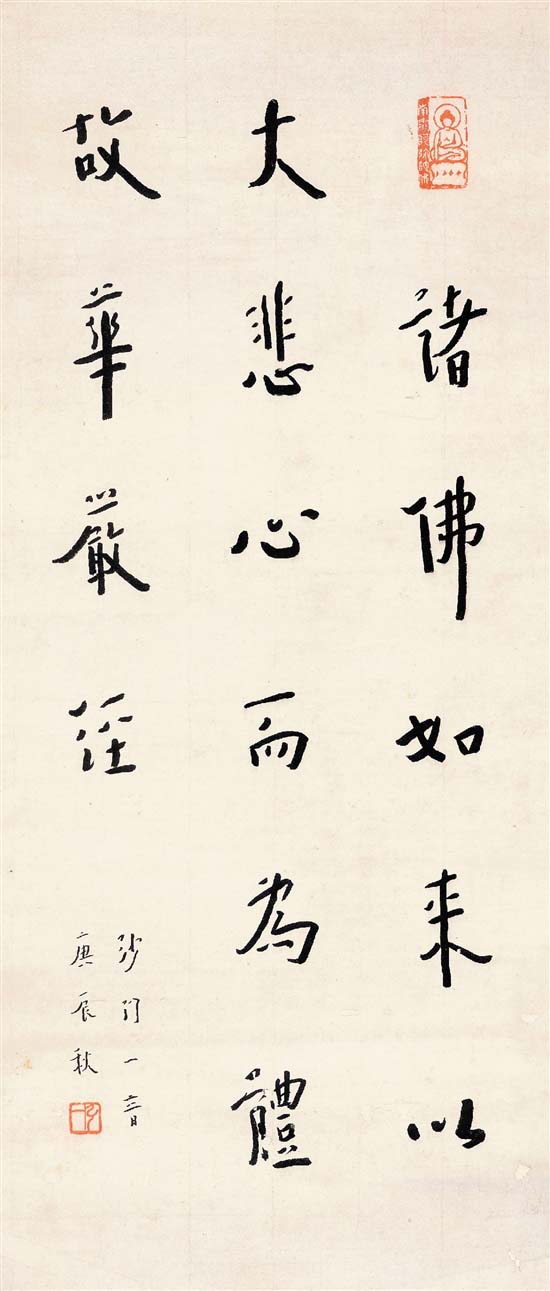 諸佛如来以
大悲心而為體
故華嚴經
沙門一音
庚辰秋
弘一